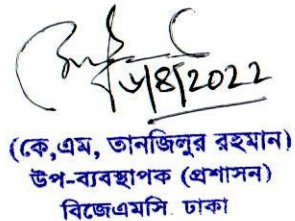 ৮/8/2022
(কে,এম, তানজিলুর রহমান)
উপ-ব্যবস্থাপক (প্রশাসন)
বিজেএমসি ঢাকা